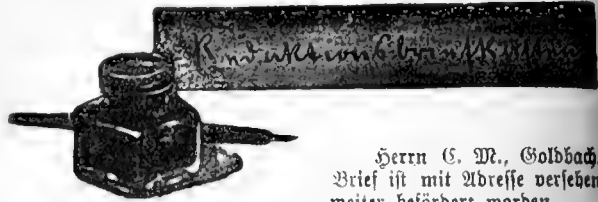 Redaktionsbriefkasten
Herrn C. M., Goldbach.
Brief ist mit Adresse versehen
weiter befördert worden